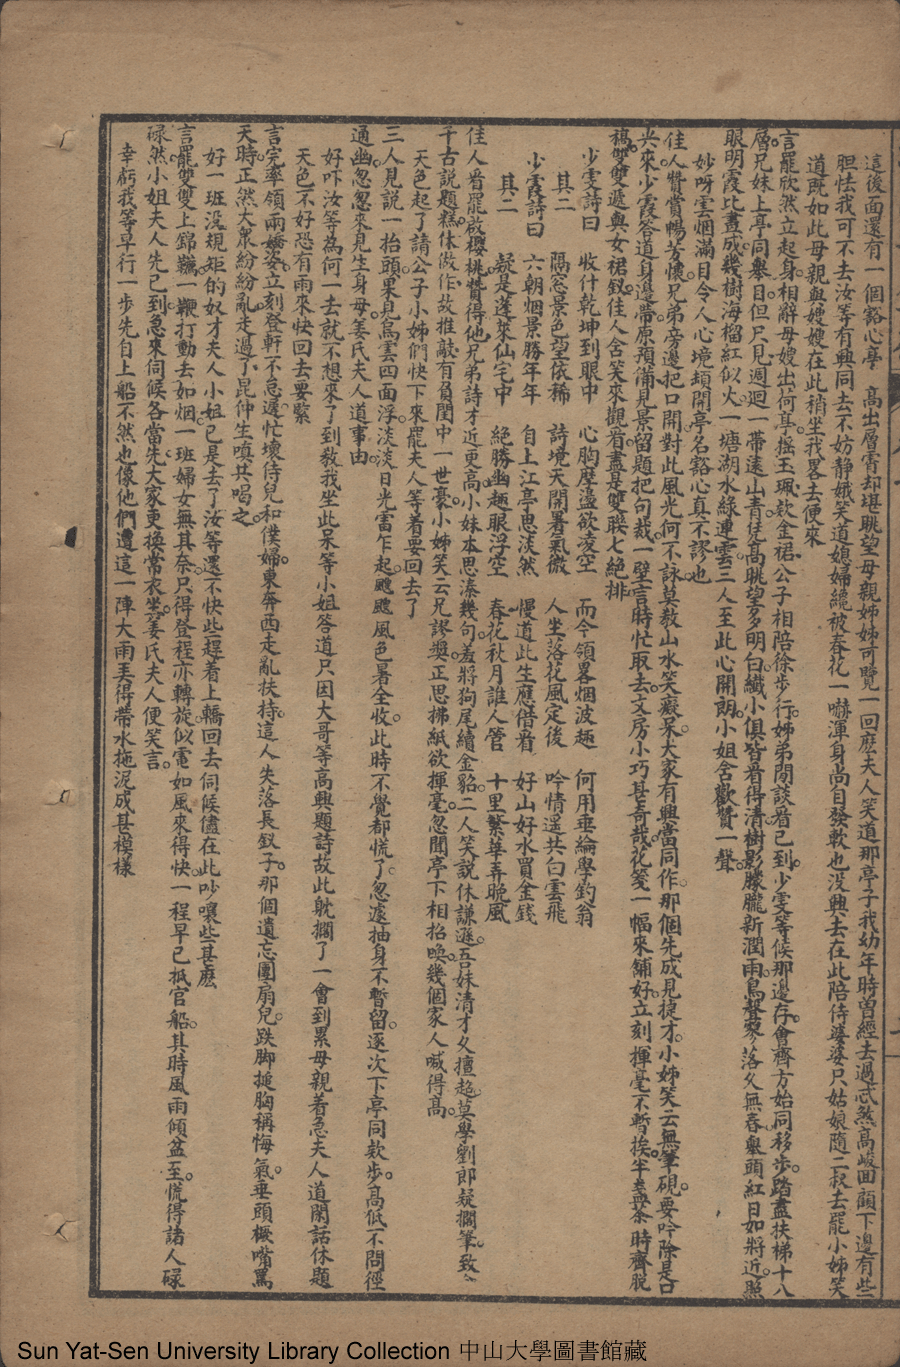 這後面還有一個豁心亭 高出層霄却堪眺望母親姊姊可覽一回麽夫人笑道那亭子我幼年時曾經去過忒煞高峻回顧下邊有些
胆怯我可不去汝等有興同去不妨静娥笑道媳婦纔被春花一嚇渾身尚自發軟也没興去在此陪侍婆婆只姑娘隨二叔去罷小姊笑
道既如此母親與嫂嫂在此稍坐我畧去便來
言罷欣然立起身相辭母嫂出荷亭搖玉珮欵金裙公子相陪徐步行姊弟閒談看已到少雯等候那邊存會齊方始同移步踏盡扶梯十八
層兄妹上亭同舉目但尺見週迴一帶遠山青凭高眺望多明白纖小俱皆看得清樹影朦朧新潤雨鳥聲寥落久無春舉頭紅日如將近照
眼明霞比畫成幾樹海榴紅似火一塘湖水綠連雲三人至此心開朗小姐含歡贊一聲
妙呀雲烟滿目令人心境頓開亭名豁心真不謬也
佳人贊賞暢芳懷兄弟旁邊把口開對此風光何不詠莫教山水笑癡呆大家有興當同作那個先成見捷才小姊笑云無筆硯要吟除是口
興來少霞答道身邊帶原預備見景留題把句裁一壁言時忙取去文房小巧甚奇哉花箋一幅來鋪好立刻揮毫不暫挨半盞茶時齊脱
稿雙雙遞與女裙釵佳人含笑來觀看盡是雙聯七絶排
少雯詩曰 收什乾坤到眼中 心胸摩盪欲凌空 而今領畧烟波趣 何用垂綸學釣翁
其二 隔窓景色望依稀 詩境天開暑氣微 人坐落花風定後 吟情遥共白雲飛
少霞詩曰 六朝烟景勝年年 自上江亭思淡然 慢道此生應借看 好山好水買金錢
其二 疑是蓬萊仙宅中 絶勝幽趣眼浮空 春花秋月誰人管 十里繁華弄晚風
佳人看罷啟櫻桃贊得他兄弟詩才近更高小妹本思湊幾句羞將狗尾續金貂二人笑說休謙遜吾妹清才久擅超莫學劉郎疑擱筆致令
千古說題糕休做作故推敲有負閨中一世豪小姊笑云兄謬奬正思拂紙欲揮毫忽聞亭下相招喚幾個家人喊得高
天色起了請公子小姊們快下來罷夫人等着要回去了
三人見說一抬頭果見烏雲四面浮淡淡日光雷乍起颼颼風色暑全收此時不覺都慌了忽遽抽身不暫留逐次下亭同欵步高低不問徑
通幽忽忽來見生身母姜氏夫人道事由
好吓汝等為何一去就不想來了到敎我坐此呆等小姐答道只因大哥等高興題詩故此躭擱了一會到累母親着急夫人道閑話休題
天色不好恐有雨來快回去要緊
言完率領兩嬌姿立刻登軒不怠遲忙壞侍兒和僕婦東奔西走亂扶持這人失落長釵子那個遺忘團扇兒跌脚搥胸稱悔氣垂頭橛嘴罵
天時正然大衆紛紛亂走過了昆仲生嗔其喝之
好一班没規矩的奴才夫人小姐已是去了汝等還不快些趕着上轎回去伺候儘在此吵嚷些甚麽
言罷雙雙上錦韉一鞭打動去如烟一班婦女無其奈只得登程亦轉旋似電如風來得快一程早已抵官船其時風雨傾盆至慌得諸人碌
碌然小姐夫人先已到急來伺候各當先大家更換常衣坐姜氏夫人便笑言
幸虧我等早行一步先自上船不然也像他們遭這一陣大雨丟得帶水拖泥成甚模樣
Sun Yat-Sen University Library Collection 中山大學圖書館藏